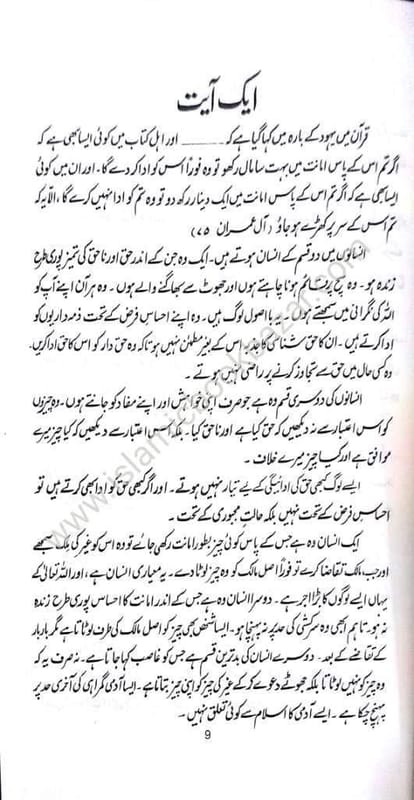 ایک آیت
قرآن میں یہود کے بارہ میں کہا گیا ہے کہ ــــــــــ اور اہل کتاب میں کوئی ایسا بھی ہے کہ
اگر تم اس کے پاس امانت میں بہت سا مال رکھو تو وہ فوراً اس کو ادا کر دے گا۔ اور ان میں کوئی
ایسا بھی ہے کہ اگر تم اس کے پاس امانت میں ایک دینار رکھ دو تو وہ تم کو ادا نہیں کرے گا، الّا یہ کہ
تم اس کے سر پر کھڑے ہو جاؤ (آل عمران ۷۵)
انسانوں میں دو قسم کے انسان ہوتے ہیں۔ ایک وہ جن کے اندر حق اور ناحق کی تمیز پوری طرح
زندہ ہو۔ وہ سچ پر قائم ہونا چاہتے ہوں اور جھوٹ سے بھاگنے والے ہوں۔ وہ ہر آن اپنے آپ کو
اللہ کی نگرانی میں سمجھتے ہوں۔ یہ با اصول لوگ ہیں۔ وہ اپنے احساس فرض کے تحت ذمہ داریوں کو
ادا کرتے ہیں۔ ان کا حق شناسی کا جذبہ اس کے بغیر مطمئن نہیں ہوتا کہ وہ حق دار کو اس کا حق ادا کریں۔
وہ کسی حال میں حق سے تجاوز کرنے پر راضی نہیں ہوتے۔
انسانوں کی دوسری قسم وہ ہے جو صرف اپنی خواہش اور اپنے مفاد کو جانتے ہوں۔ وہ چیزوں
کو اس اعتبار سے نہ دیکھیں کہ حق کیا ہے اور ناحق کیا۔ بلکہ اس اعتبار سے دیکھیں کہ کیا چیز میرے
موافق ہے اور کیا چیز میرے خلاف۔
ایسے لوگ کبھی حق کی ادائیگی کے لیے تیار نہیں ہوتے۔ اور اگر کبھی حق کو ادا بھی کرتے ہیں تو
احساس فرض کے تحت نہیں بلکہ حالت مجبوری کے تحت۔
ایک انسان وہ ہے جس کے پاس کوئی چیز بطور امانت رکھی جائے تو وہ اس کو غیر کی ملک سمجھے
اور جب مالک تقاضا کرے تو فوراً اصل مالک کو وہ چیز لوٹا دے۔ یہ معیاری انسان ہے، اور اللہ تعالیٰ کے
یہاں ایسے لوگوں کا بڑا اجر ہے۔ دوسرا انسان وہ ہے جس کے اندر امانت کا احساس پوری طرح زندہ
نہ ہو۔ تاہم ابھی وہ سرکشی کی حد پر نہ پہنچا ہو۔ ایسا شخص بھی چیز کو اصل مالک کی طرف لوٹاتا ہے مگر بار بار
کے تقاضے کے بعد۔ دوسرے انسان کی بدترین قسم ہے جس کو غاصب کہا جاتا ہے۔ نہ صرف یہ کہ
وہ چیز کو نہیں لوٹاتا بلکہ جھوٹے دعوے کر کے غیر کی چیز کو اپنی چیز بتاتا ہے۔ ایسا آدمی گمراہی کی آخری حد پر
پہنچ چکا ہے۔ ایسے آدمی کا اسلام سے کوئی تعلق نہیں۔
9